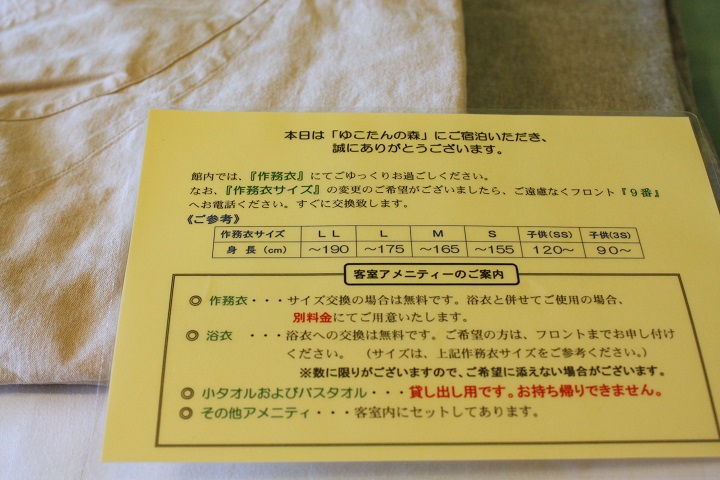 本日は「ゆこたんの森」にご宿泊いただき、
誠にありがとうございます。
館内では、『作務衣』にてごゆっくりお過ごしください。
なお、『作務衣サイズ』の変更のご希望がございましたら、ご遠慮なくフロント『９番』
へお電話ください。すぐに交換致します。
《ご参考》
作務衣サイズ ＬＬ Ｌ Ｍ Ｓ 子供(SS) 子供(3S)
身 長（cm） ～190 ～175 ～165 ～155 120～ 90～
客室アメニティーのご案内
◎ 作務衣・・・サイズ交換の場合は無料です。浴衣と併せてご使用の場合、
別料金にてご用意いたします。
◎ 浴衣 ・・・浴衣への交換は無料です。ご希望の方は、フロントまでお申し付け
ください。（サイズは、上記作務衣サイズをご参考ください。）
※数に限りがございますので、ご希望に添えない場合がございます。
◎ 小タオルおよびバスタオル・・・貸し出し用です。お持ち帰りできません。
◎ その他アメニティ・・・客室内にセットしてあります。